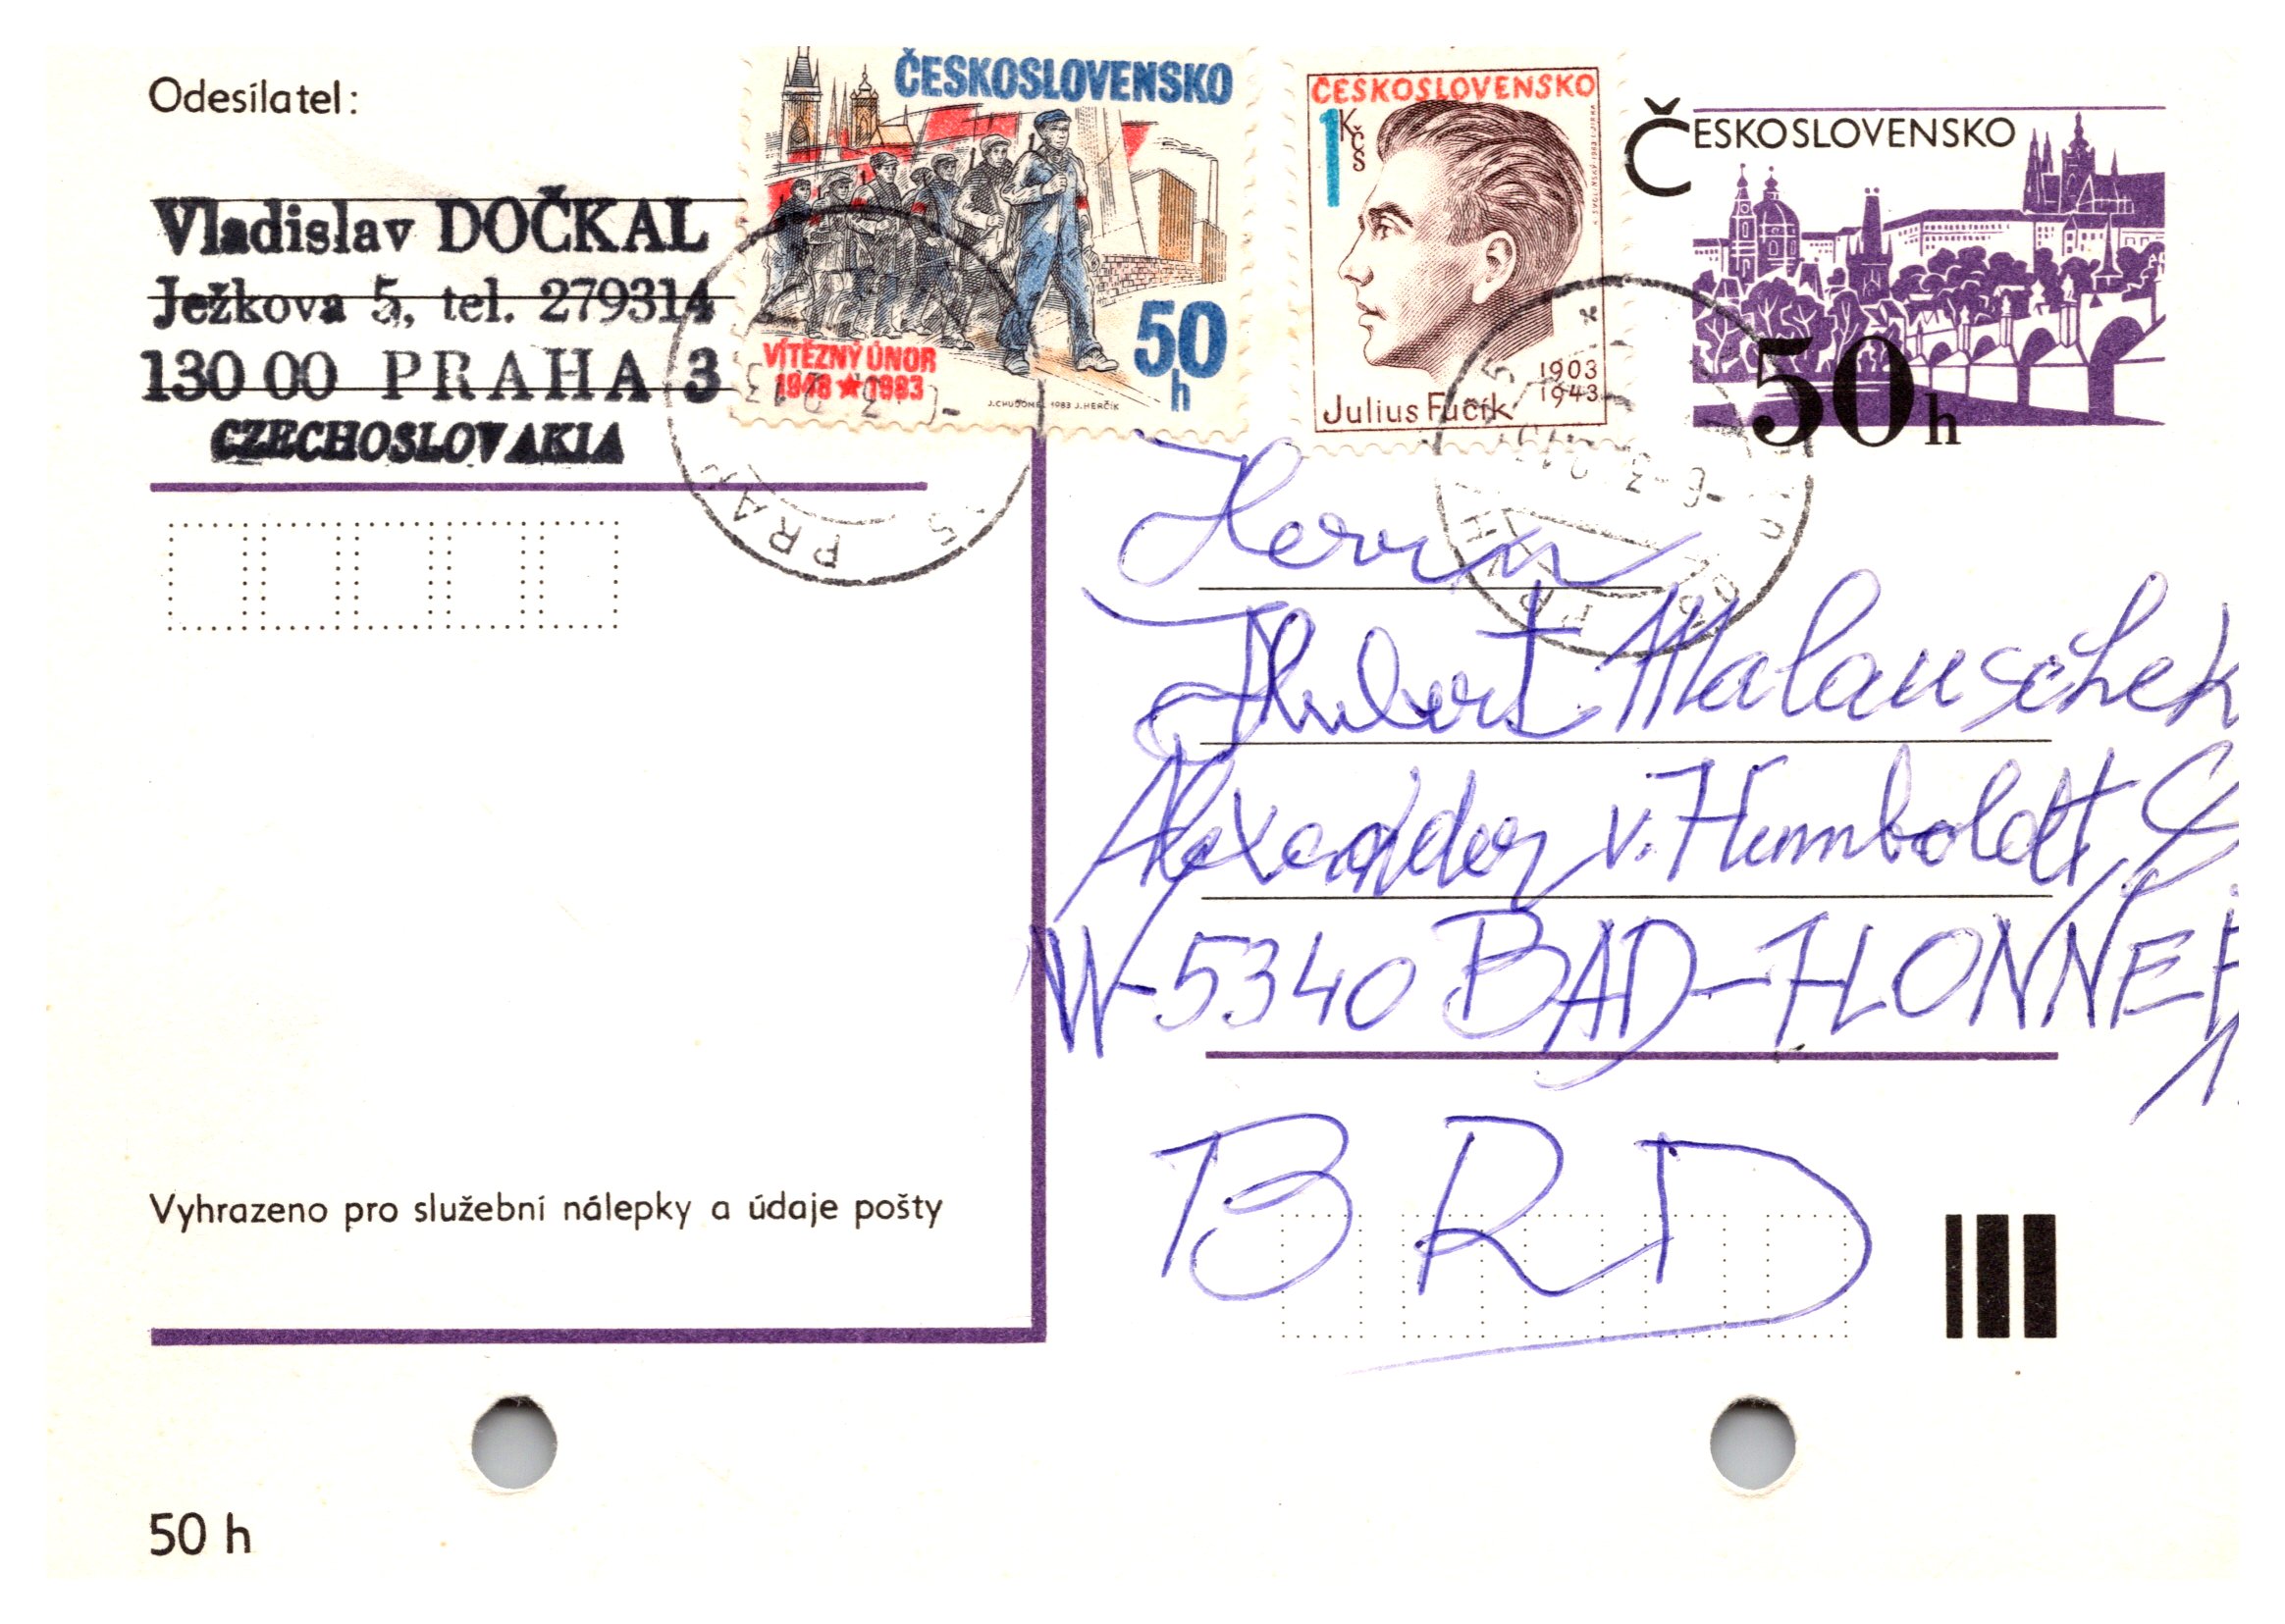 Odesílatel:
Vladislav DOČKAL
Ježkova 5, tel. 279314
130 00 PRAHA 3
CZECHOSLOVAKIA
ČESKOSLOVENSKO
VÍTĚZNÝ ÚNOR
1948 ★ 1983
50
h
J.CHUDOMEL 1983 J.HERČÍK
ČESKOSLOVENSKO
1 Kčs
K.SVOLINSKÝ 1983 L.JIRKA
1903
1943
Julius Fučík
ČESKOSLOVENSKO
50h
Herrn
Hubert Malauschek
Alexander v. Humboldt
W-5340 BAD-HONNEF
1
BRD
Vyhrazeno pro služební nálepky a údaje pošty
50 h